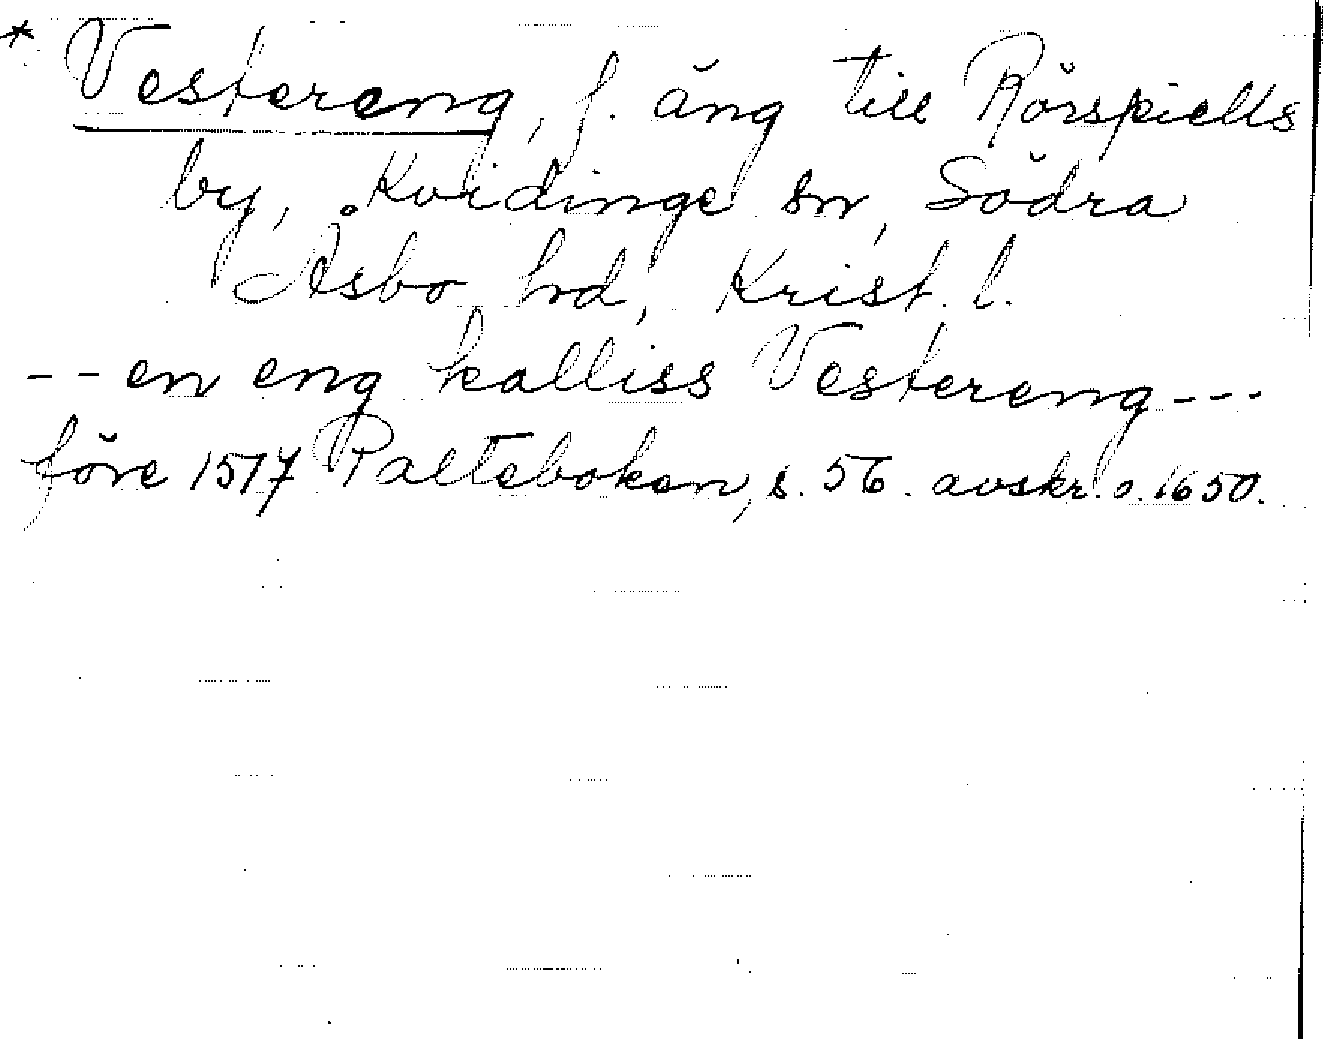 * Vestereng, f. äng till Rörspiells
by, Kvidinge sn, Södra
Åsbo hd, Krist. l.
-- en eng kalliss Vestereng ---
före 1517 Palteboken, s. 56. avskr. o. 1650.